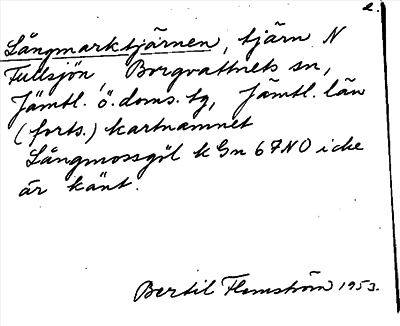 2.
Långmarktjärnen, tjärn N
Fullsjön, Borgvattnets sn,
Jämtl. ö. doms. tg, Jämtl. län
(forts.) kartnamnet
Långmossgöl k Gn 67 NO icke
är känt.
Bertil Flemström 1953.